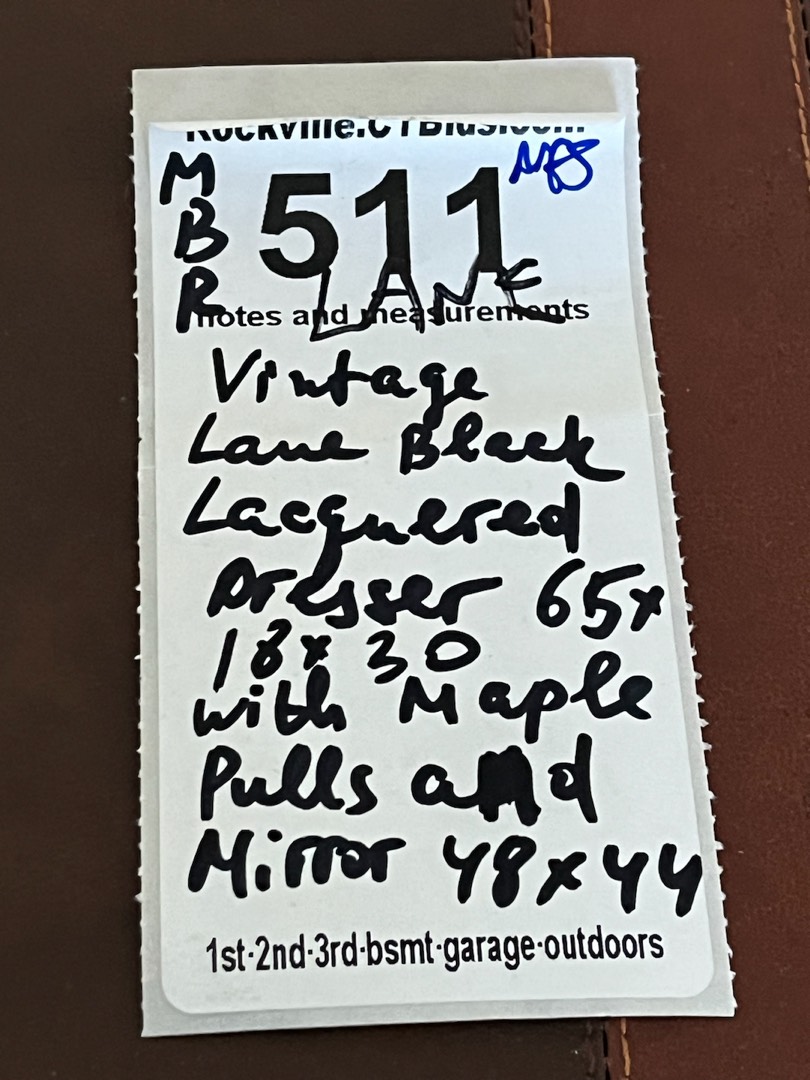 Rockville.CTBids.com
M
B
R
511
LANE
notes and measurements
Vintage
Lane Black
Lacquered
Dresser 65x
18x30
with Maple
Pulls and
Mirror 48x44
1st·2nd·3rd·bsmt·garage·outdoors